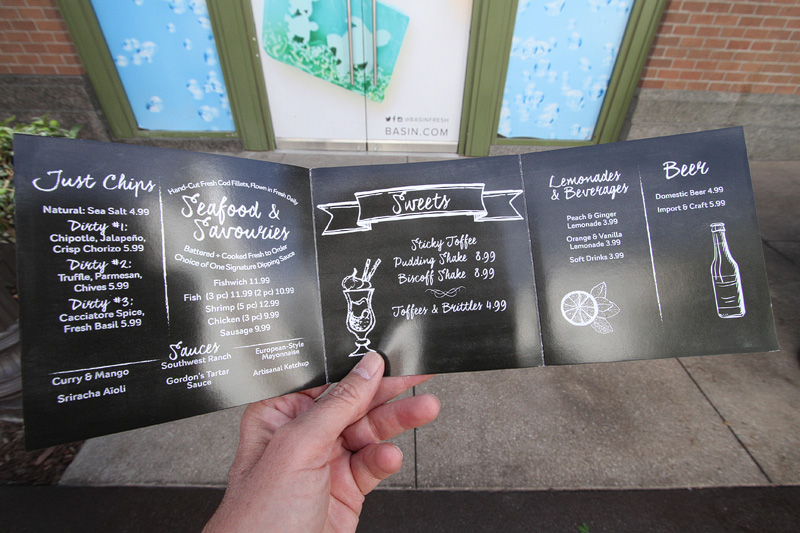 @BASINFRESH
BASIN.COM
Just Chips
Natural: Sea Salt 4.99
Dirty #1:
Chipotle, Jalapeño,
Crisp Chorizo 5.99
Dirty #2:
Truffle, Parmesan,
Chives 5.99
Dirty #3:
Cacciatore Spice,
Fresh Basil 5.99
Hand-Cut Fresh Cod Fillets, Flown in Fresh Daily
Seafood &
Savouries
Battered + Cooked Fresh to Order
Choice of One Signature Dipping Sauce
Fishwich 11.99
Fish (3 pc) 11.99 (2 pc) 10.99
Shrimp (5 pc) 12.99
Chicken (3 pc) 9.99
Sausage 9.99
Sauces
Curry & Mango
Sriracha Aïoli
Southwest Ranch
Gordon's Tartar
Sauce
European-Style
Mayonnaise
Artisanal Ketchup
Sweets
Sticky Toffee
Pudding Shake 8.99
Biscoff Shake 8.99
Toffees & Brittles 4.99
Lemonades
& Beverages
Peach & Ginger
Lemonade 3.99
Orange & Vanilla
Lemonade 3.99
Soft Drinks 3.99
Beer
Domestic Beer 4.99
Import & Craft 5.99